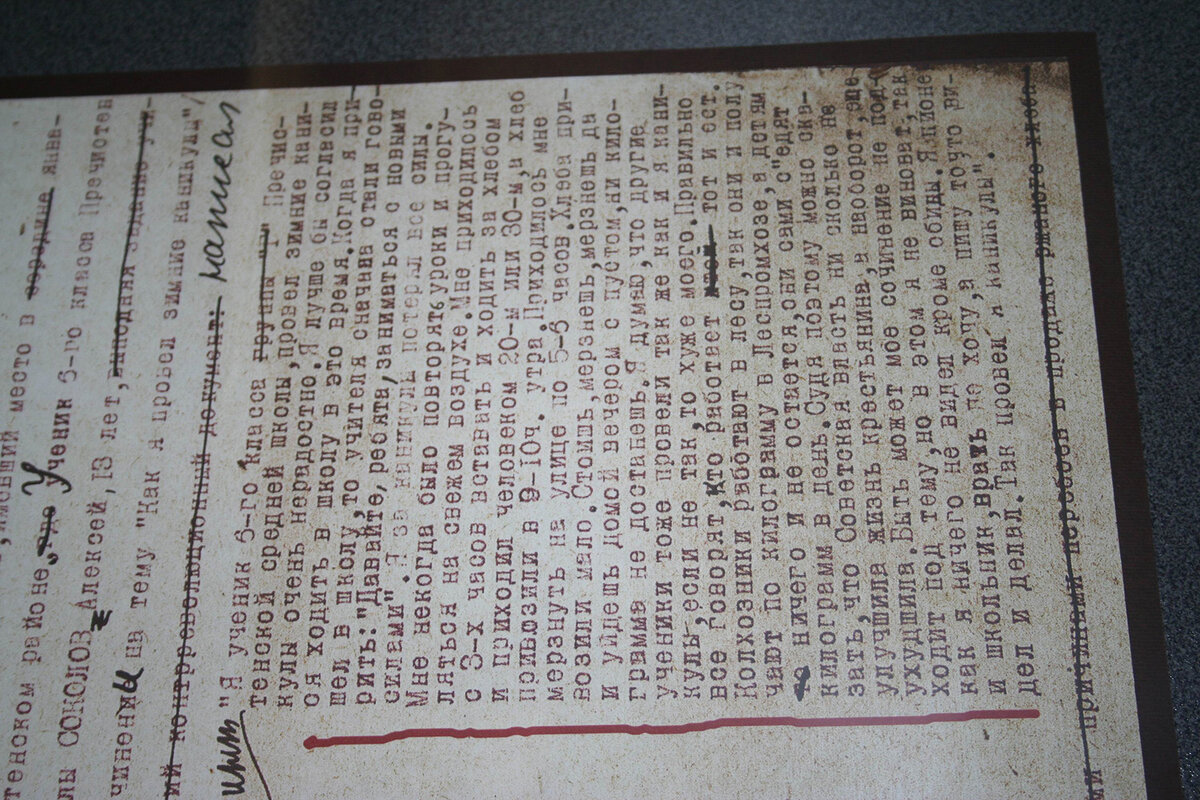 ,имевший место в середине янва-
тенском районе, где Ученик 6-го класса Пречистен
лы СОКОЛОВ Алексей, 13 лет,
чинены на тему "Как я провел зимние каникулы"/
ий контрреволюционный документ: написал
"Я ученик 6-го класса группы "Г" Пречис-
тенской средней школы, провел зимние кани-
кулы очень нерадостно. Я лучше бы согласил
ся ходить в школу в это время. Когда я при-
шел в школу, то учителя сначала стали гово-
рить: "Давайте, ребята, заниматься с новыми
силами". Я за каникулы потерял все силы.
Мне некогда было повторять уроки и прогу-
ляться на свежем воздухе. Мне приходилось
с 3-х часов вставать и ходить за хлебом
и приходил человеком 20-м или 30-м, а хлеб
привозили в 9-10ч. утра. Приходилось мне
мерзнуть на улице по 5-6 часов. Хлеба при-
возили мало. Стоишь, мерзнешь, мерзнешь да
и уйдешь домой вечером с пустом, ни кило-
грамма не достанешь. Я думаю, что другие
ученики тоже провели так же как и я кани-
кулы, если не так, то хуже моего. Правильно
все говорят, Кто работает тот и ест.
Колхозники работают в лесу, так они и полу
чают по килограмму в Леспромхозе, а детям
ничего и не остается, они сами с"едят
килограмм в день. Судя поэтому можно ска-
зать, что Советская власть ни сколько не
улучшила жизнь крестьянина, а наоборот, еще
ухудшила. Быть может мое сочинение не под-
ходит под тему, но в этом я не виноват, так
как я ничего не видел кроме обиды. Я пионер
и школьник, врать не хочу, а пишу то что ви-
дел и делал. Так провел я каникулы".
ми причиний перебоев в продаже ржаного хлеба